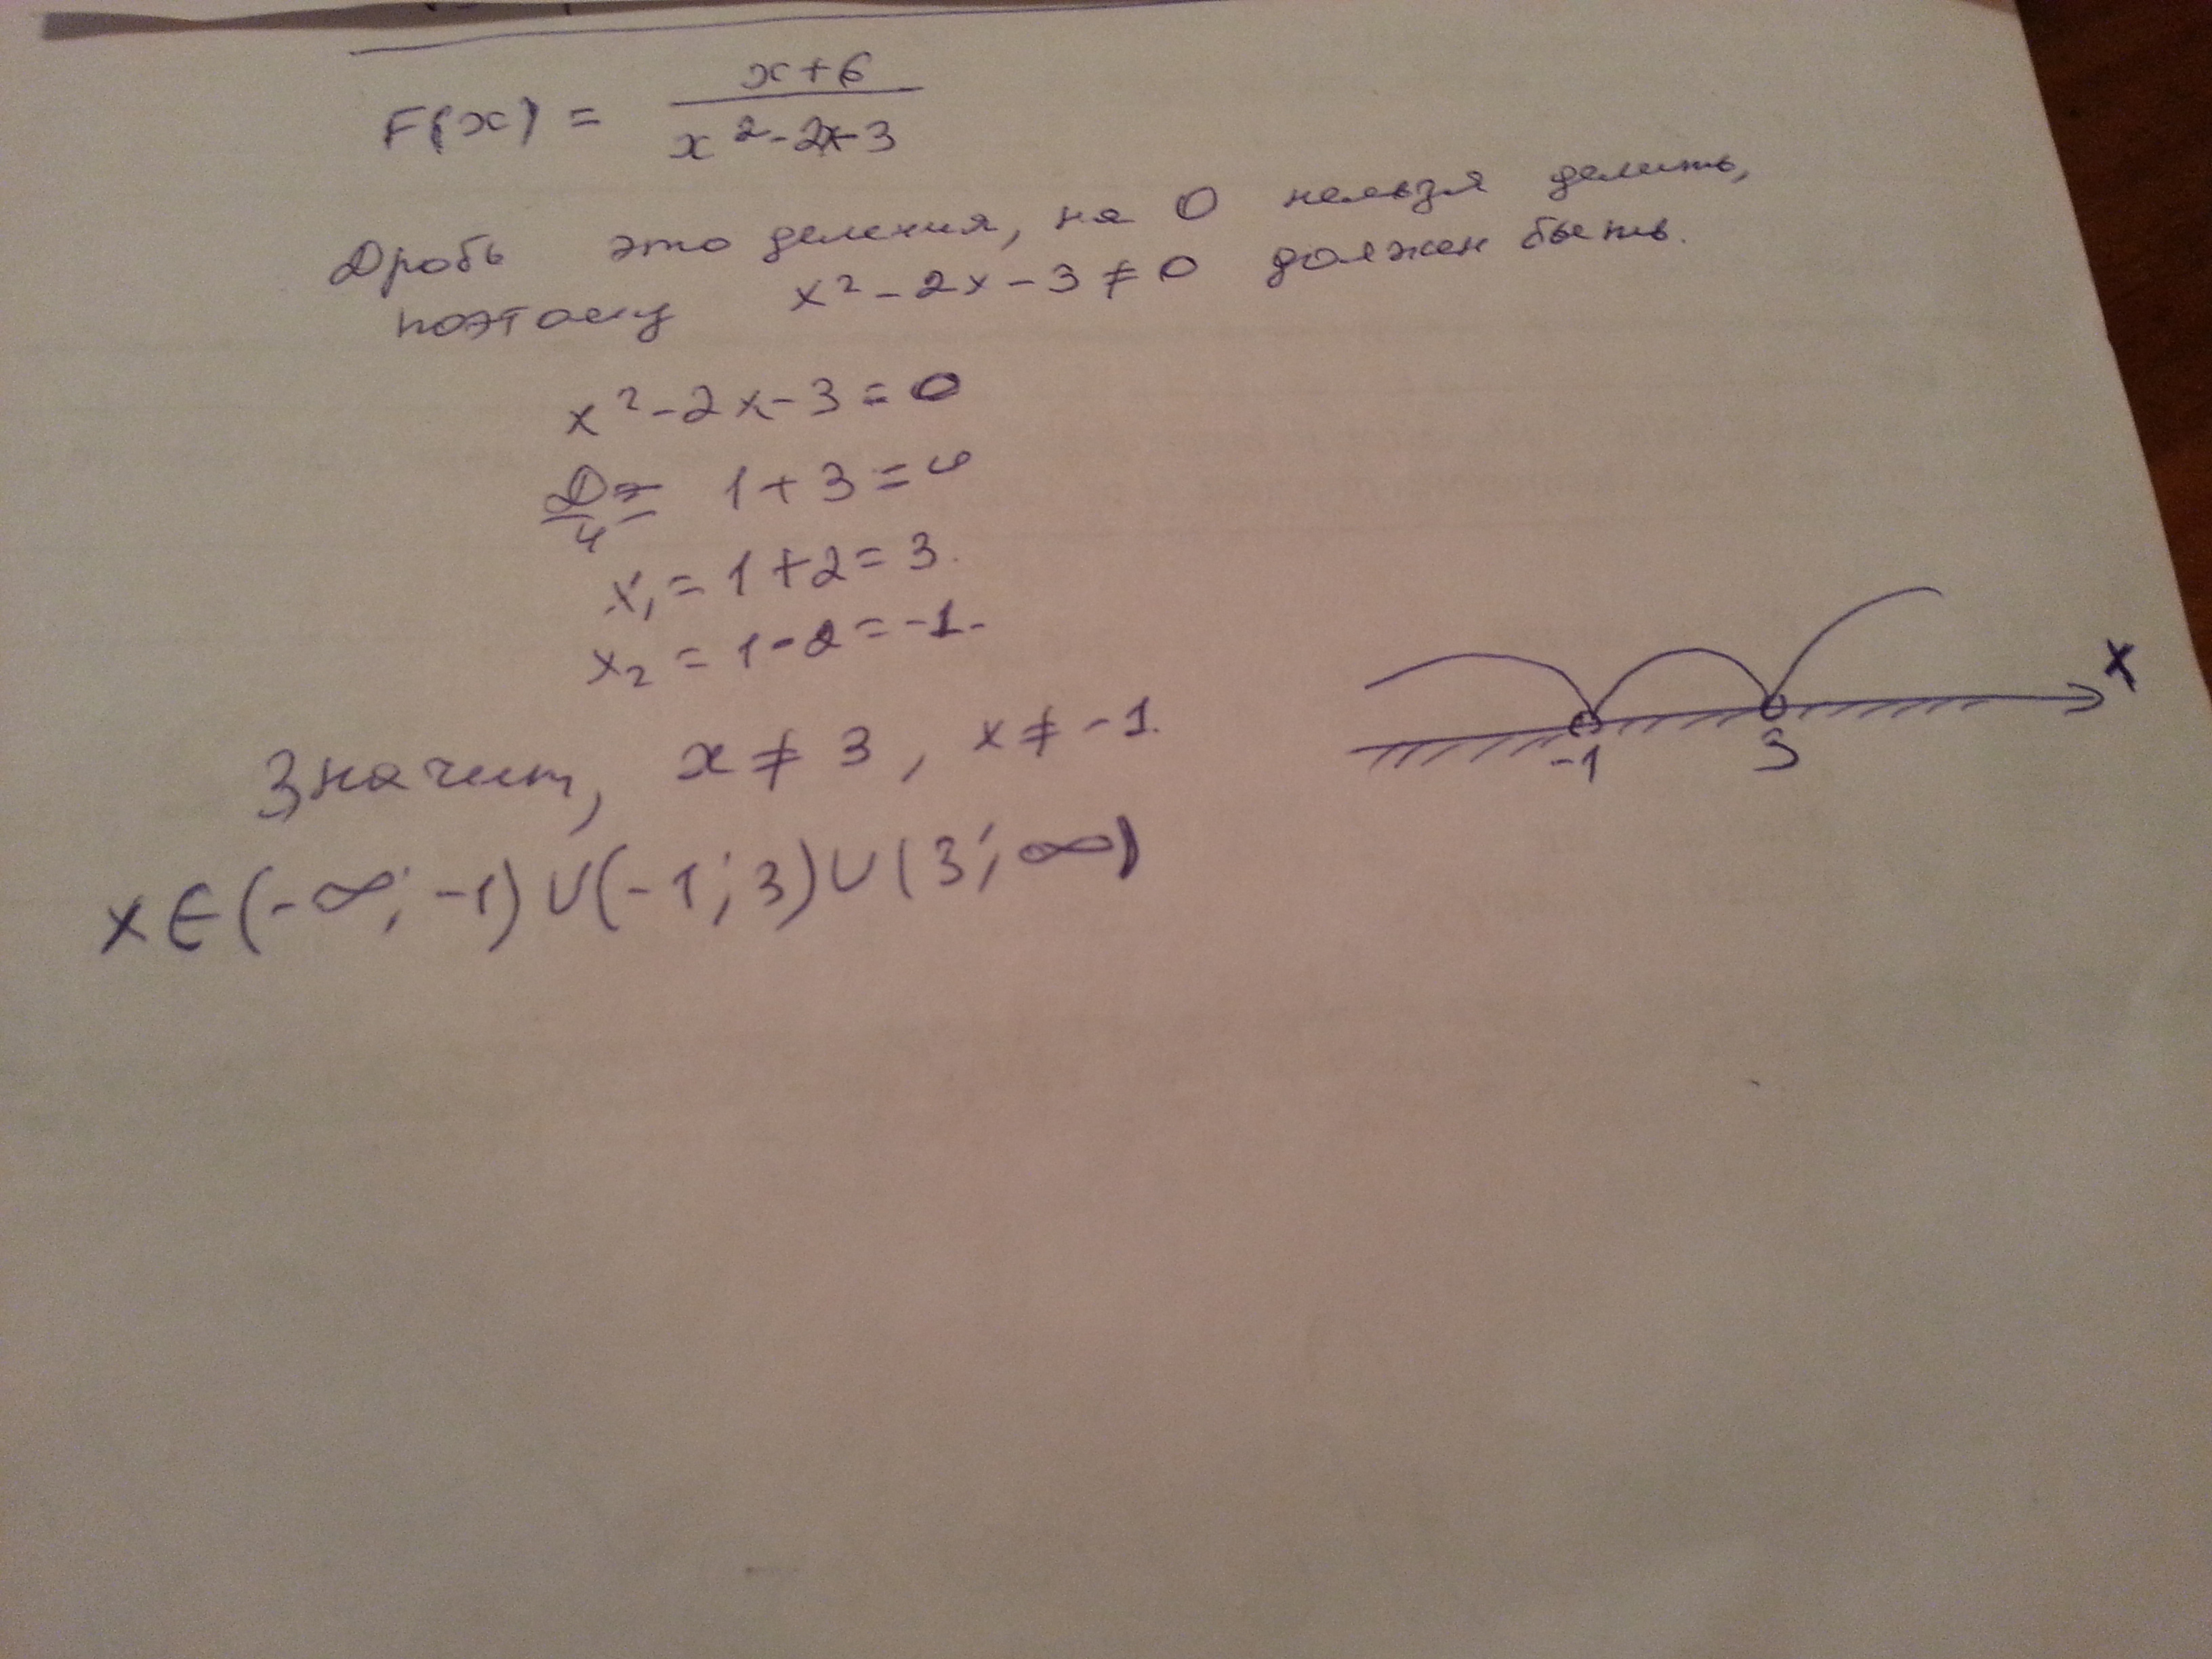 F(x) = x+6 / x²-2x-3
Дробь это деления, на 0 нельзя делить,
поэтому x²-2x-3≠0 должен быть.
x²-2x-3=0
D/4= 1+3=4
x₁=1+2=3.
x₂=1-2=-1.
Значит, x≠3, x≠-1.
-1 3 X
x∈(-∞;-1)∪(-1;3)∪(3;∞)